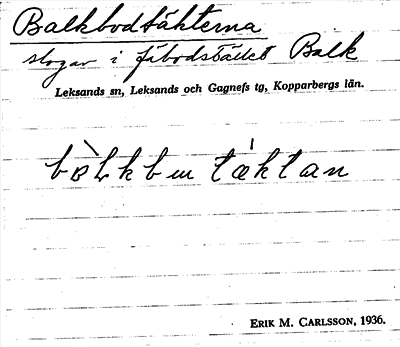 Balkbodtäkterna
slogar i fäbodstället Balk
Leksands sn, Leksands och Gagnefs tg, Kopparbergs län.
ERIK M. CARLSSON, 1936.